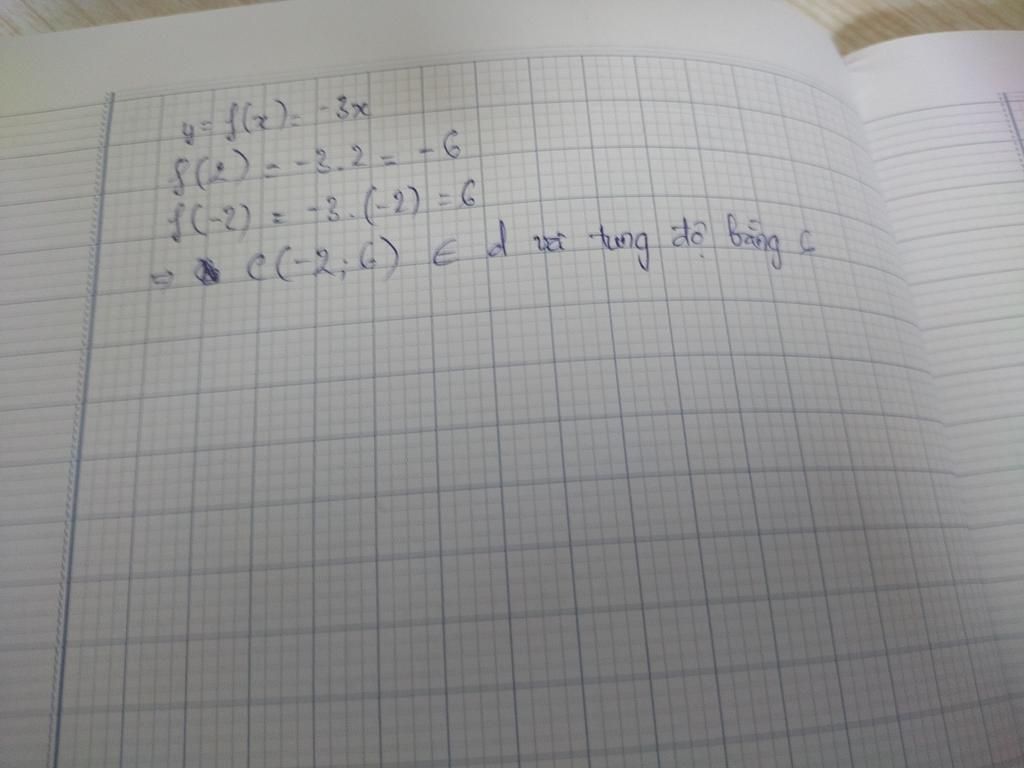 y = f(x) = -3x
f(2) = -3.2 = -6
f(-2) = -3.(-2) = 6
=> C(-2; 6) ∈ d với tung độ bằng 6